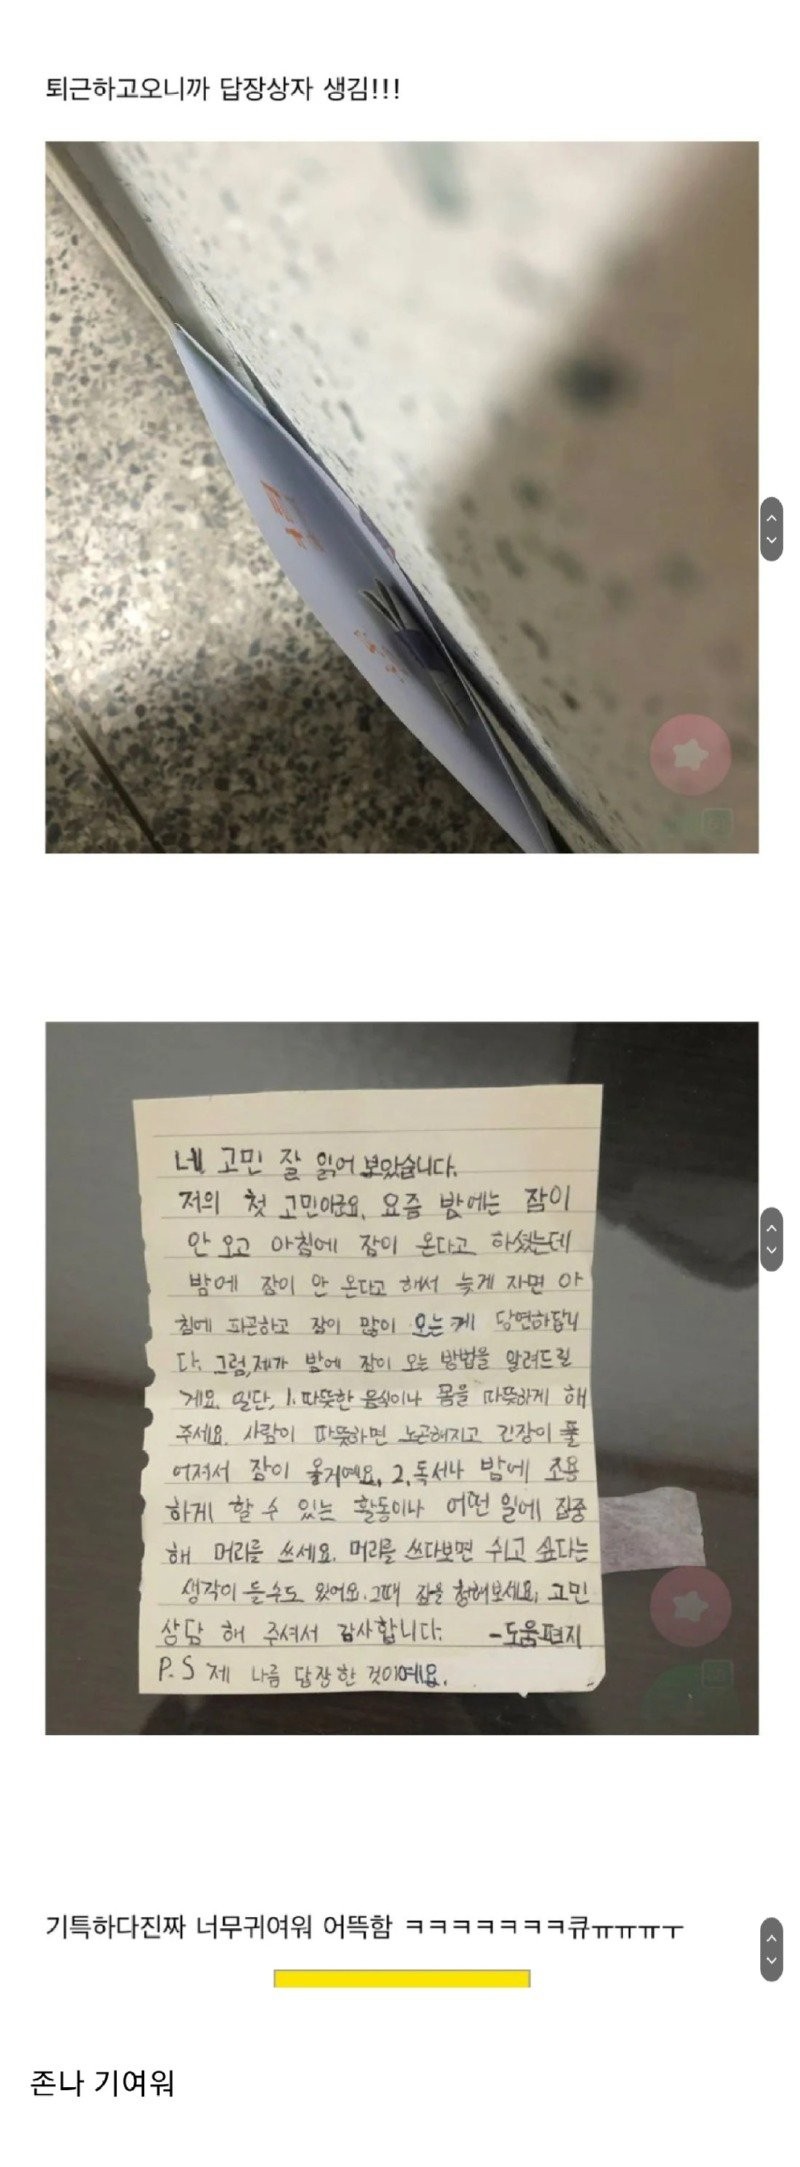 퇴근하고오니까 답장상자 생김!!!
네 고민 잘 읽어 보았습니다.
저의 첫 고민이군요. 요즘 밤에는 잠이
안 오고 아침에 잠이 온다고 하셨는데
밤에 잠이 안 온다고 해서 늦게 자면 아
침에 피곤하고 잠이 많이 오는게 당연하답니
다. 그럼, 제가 밤에 잠이 오는 방법을 알려드릴
게요. 일단, 1. 따뜻한 음식이나 몸을 따뜻하게 해
주세요. 사람이 따뜻하면 노곤해지고 긴장이 풀
어져서 잠이 올거예요. 2. 독서나 밤에 조용
하게 할 수 있는 활동이나 어떤 일에 집중
해 머리를 쓰세요. 머리를 쓰다보면 쉬고 싶다는
생각이 들수도 있어요. 그때 잠을 청해보세요. 고민
상담 해 주셔서 감사합니다. -도움편지
P.S 제 나름 답장한 것이예요.
기특하다진짜 너무귀여워 어뜩함 ㅋㅋㅋㅋㅋㅋㅋ큐ㅠㅠㅠㅜ
존나 기여워